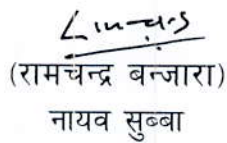 (रामचन्द्र बन्जारा)
नायव सुब्बा